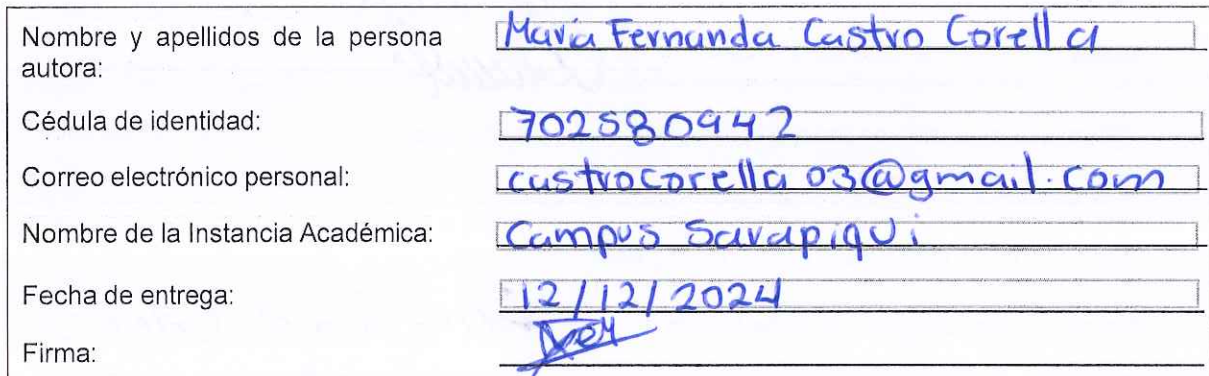 Nombre y apellidos de la persona María Fernanda Castro Corella
autora:
Cédula de identidad: 702580942
Correo electrónico personal: castrocorella03@gmail.com
Nombre de la Instancia Académica: Campus Sarapiquí
Fecha de entrega: 12/12/2024
Firma: